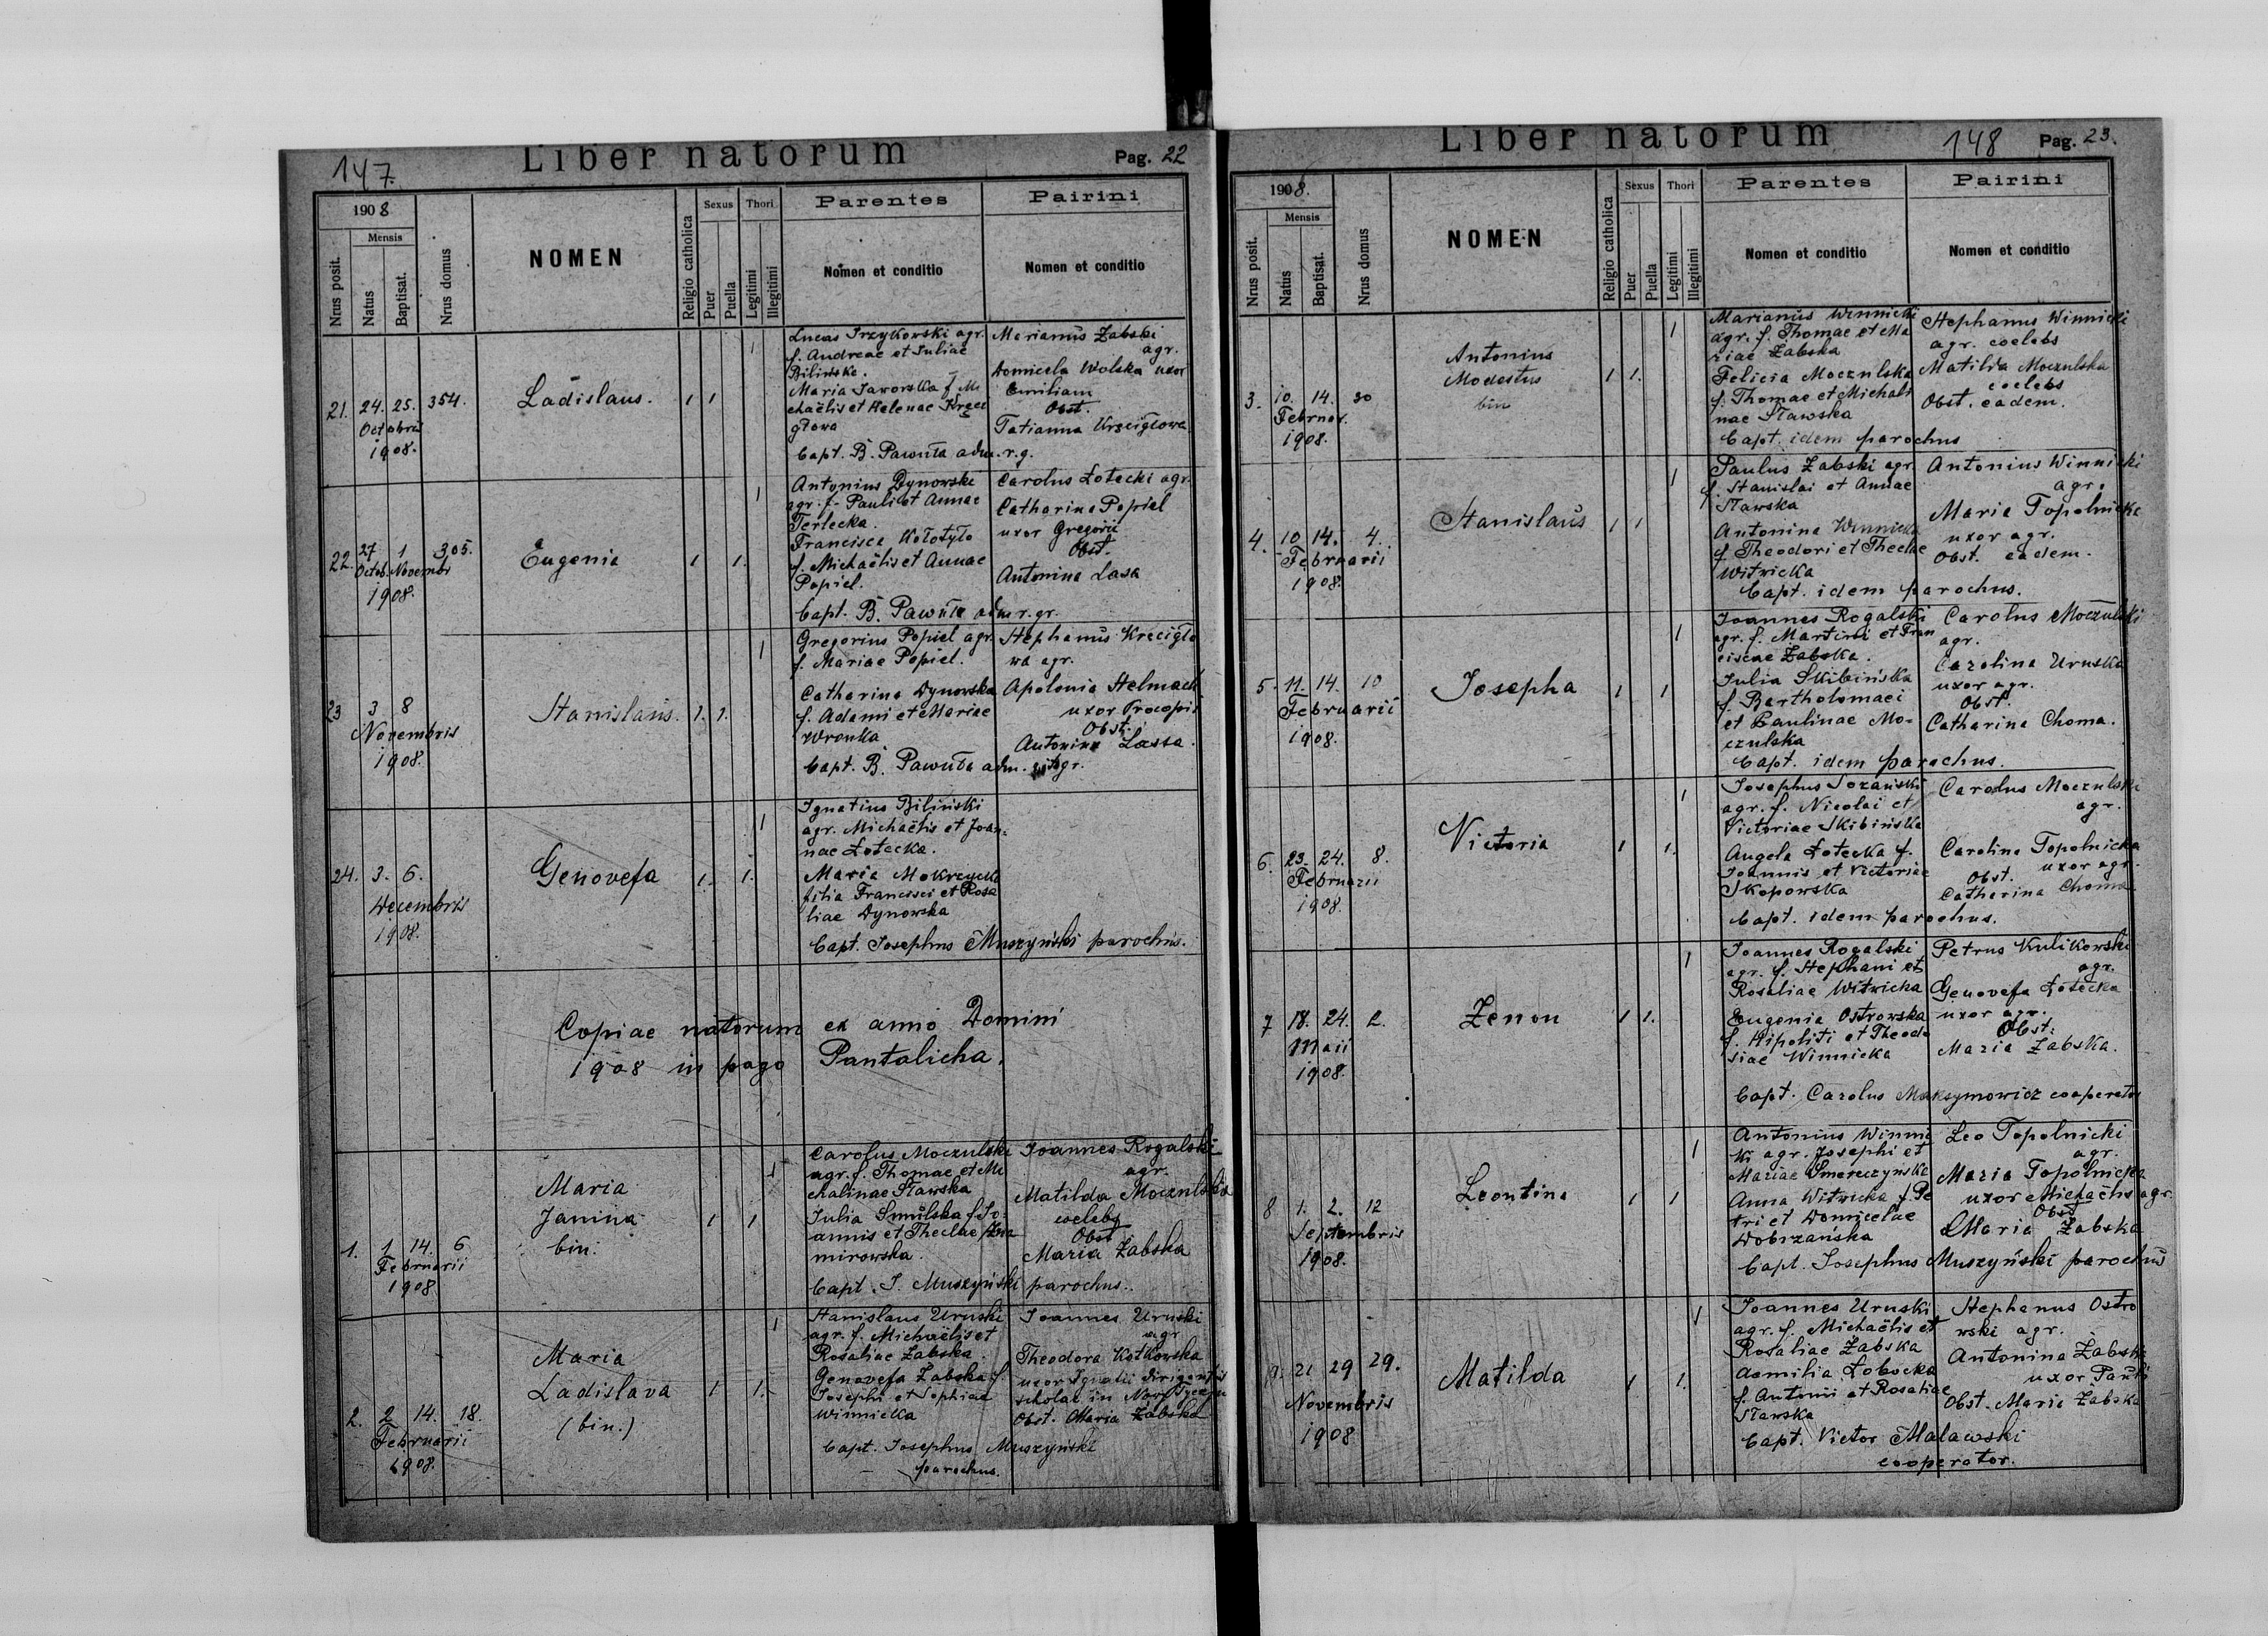 147.
Liber natorum
Pag. 22
1908
Nrus posit.
Mensis
Natus
Baptisat.
Nrus domus
NOMEN
Religio catholica
Sexus
Puer
Puella
Thori
Legitimi
Illegitimi
Parentes
Nomen et conditio
Pairini
Nomen et conditio
21. 24. 25. 354.
Octobris
1908.
Ladislaus.
1 1 1
Lucas Irzykowski agr.
f. Andreae et Juliae
Bilińska.
Maria Jaworska f. Mi
chaëlis et Helenae Kręci
głowa
Marianus Żabski
agr.
Domicela Wolska uxor
Emiliani
Obst.
Tatianna Kręcigłowa
Bapt. B. Pawuła adm. r. g.
22. 27 1 305.
Octob. Novembr
1908.
Eugenia
1 1. 1
Antonius Dynowski
agr. f. Pauli et Annae
Terlecka.
Francisca Kołotyło
f. Michaëlis et Annae
Popiel.
Carolus Łotecki agr.
Catharina Popiel
uxor Gregorii
Obst.
Antonina Lasa
Bapt. B. Pawuła adm r. gr.
23 3 8
Novembris
1908.
Stanislaus.
1. 1. 1
Gregorius Popiel agr.
f. Mariae Popiel.
Catharina Dynowska
f. Adami et Mariae
Wronka
Stephanus Kręcigło
wa agr.
Apolonia Helmach
uxor Procopii
Obst.
Antonina Lassa.
Bapt. B. Pawuła adm. gr.
24. 3. 6.
Decembris
1908.
Genovefa
1. 1. 1
Ignatius Biliński
agr. Michaëlis et Joan-
nae Łotecka.
Maria Mokrzycka
filia Francisci et Rosa
liae Dynowska
Bapt. Josephus Muszyński parochus.
Copiae natorum ex anno Domini
1908 in pago Pantalicha.
1. 1 14. 6
Februarii
1908
Maria
Janina
bin.
1 1 1
Carolus Moczulski
agr. f. Thomae et Mi
chalinae Sławska
Julia Smulska f. Jo-
annis et Theclae
mirowska.
Joannes Rogalski
agr.
Matilda Moczulska
coelebs
Obst
Maria Żabska
Bapt. J. Muszyński parochus.
2. 2 14. 18.
Februarii
1908.
Maria
Ladislava
(bin.)
1 1. 1
Stanislaus Uruski
agr. f. Michaëlis et
Rosaliae Żabska.
Genovefa Żabska f.
Josephi et Sophiae
Winnicka
Joannes Uruski
agr
Theodora Kotkowska
uxor Ignatii dirigentis
scholae in
Obst. Maria Żabska
Bapt. Josephus Muszyński
parochus.
Liber natorum
148
Pag. 23.
1908.
Nrus posit.
Mensis
Natus
Baptisat.
Nrus domus
NOMEN
Religio catholica
Sexus
Puer
Puella
Thori
Legitimi
Illegitimi
Parentes
Nomen et conditio
Pairini
Nomen et conditio
3. 10. 14. 30
Februar.
1908.
Antonius
Modestus
bin
1 1. 1
Marianus Winnicki
agr. f. Thomae et Ma
riae Żabska
Felicia Moczulska
f. Thomae et Michali
nae Sławska
Stephanus Winnicki
agr. coelebs
Matilda Moczulska
coelebs
Obst. eadem.
Bapt. idem parochus
4. 10 14. 4.
Februarii
1908.
Stanislaus
1 1 1
Paulus Żabski agr
f. Stanislai et Annae
Sławska
Antonina Winnicka
f. Theodori et Theclae
Witwicka
Antonius Winnicki
agr.
Maria Topolnicka
uxor agr.
Obst. eadem.
Bapt. idem parochus.
5. 11. 14. 10
Februarii
1908.
Josepha
1 1 1
Joannes Rogalski
agr. f. Martini et Fran
ciscae Żabska.
Julia Skibińska
f. Bartholomaei
et Paulinae Mo-
czulska
Carolus Moczulski
agr.
Carolina Uruska
uxor agr.
Obst.
Catharina Choma.
Bapt. idem parochus.
6. 23. 24. 8.
Februarii
1908.
Victoria
1 1. 1
Josephus Sozański
agr. f. Nicolai et
Victoriae Skibińska
Angela Łotecka f.
Joannis et Victoriae
Skopowska
Carolus Moczulski
agr.
Carolina Topolnicka
uxor agr.
Obst.
Catharina Choma
Bapt. idem parochus.
7 18. 24. 2.
Maii
1908.
Zenon
1 1. 1
Joannes Rogalski
agr. f. Stephani et
Rosaliae Witwicka
Eugenia Ostrowska
f. Hipoliti et Theodo
siae Winnicka
Petrus Kulikowski
agr.
Genovefa Łotecka
uxor agr.
Obst:
Maria Żabska.
Bapt. Carolus Maksymowicz cooperator
8 1. 2. 12
Septembris
1908.
Leontina
1 1 1
Antonius Winni
ki agr. Josephi et
Mariae Smereczyńska
Anna Witwicka f. Pe
tri et Domicelae
Dobrzańska
Leo Topolnicki
agr.
Maria Topolnicka
uxor Michaëlis agr.
Obst
Maria Żabska
Bapt. Josephus Muszyński parochus
9. 21 29 29.
Novembris
1908
Matilda
1 1. 1
Joannes Uruski
agr. f. Michaëlis et
Rosaliae Żabska
Aemilia Łobocka
f. Antonii et Rosaliae
Sławska
Stephanus Ostro
wski agr.
Antonina Żabski
uxor Pauli
Obst. Maria Żabska
Bapt. Victor Malawski
cooperator.